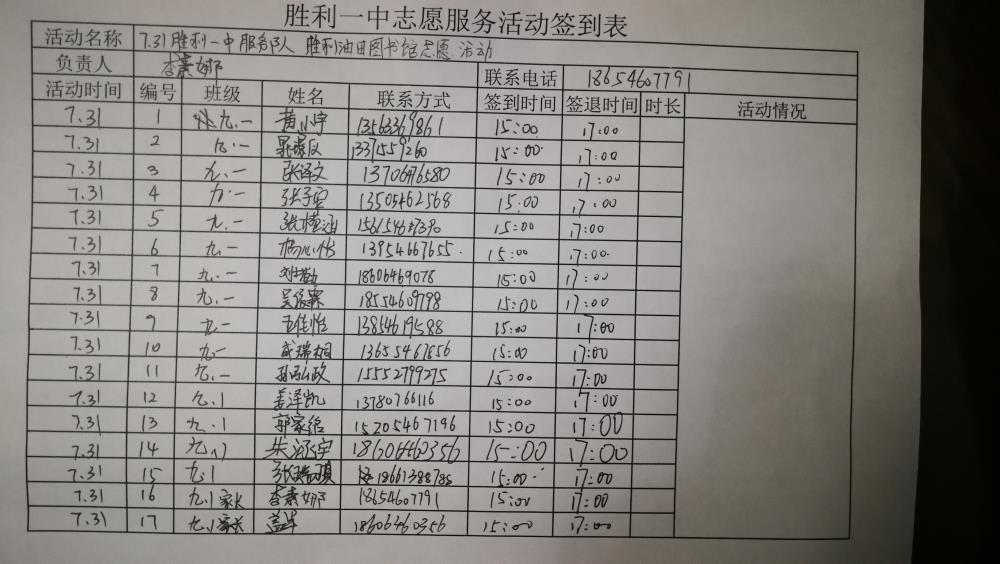 胜利一中志愿服务活动签到表
活动名称 7.31胜利一中服务队 胜利油田图书馆志愿活动
负责人 李素娜 联系电话 18654607791
活动时间 编号 班级 姓名 联系方式 签到时间 签退时间 时长 活动情况
7.31 1 九.一 黄小宇 13563369861 15:00 17:00
7.31 2 九.一 13371559260 15:00 17:00
7.31 3 九.一 张译文 13706476580 15:00 17:00
7.31 4 九.一 张子宜 13505462568 15:00 17:00
7.31 5 九.一 15:00 17:00
7.31 6 九.一 杨心怡 13954667655 15:00 17:00
7.31 7 九.一 18606469078 15:00 17:00
7.31 8 九.一 吴绥霖 18554609798 15:00 17:00
7.31 9 九一 王佳怡 13854619588 15:00 17:00
7.31 10 九一 成瑞相 13655467856 15:00 17:00
7.31 11 九.一 孙弘政 15552799275 15:00 17:00
7.31 12 九.1 姜泽凯 13780766116 15:00 17:00
7.31 13 九.1 郭家铭 15205467196 15:00 17:00
7.31 14 九.1 朱涵宇 18606460356 15:00 17:00
7.31 15 九.1 张瑞琪 18661388785 15:00 17:00
7.31 16 九.1家长 李素娜 18654607791 15:00 17:00
7.31 17 九.1家长 盖华 18606360356 15:00 17:00